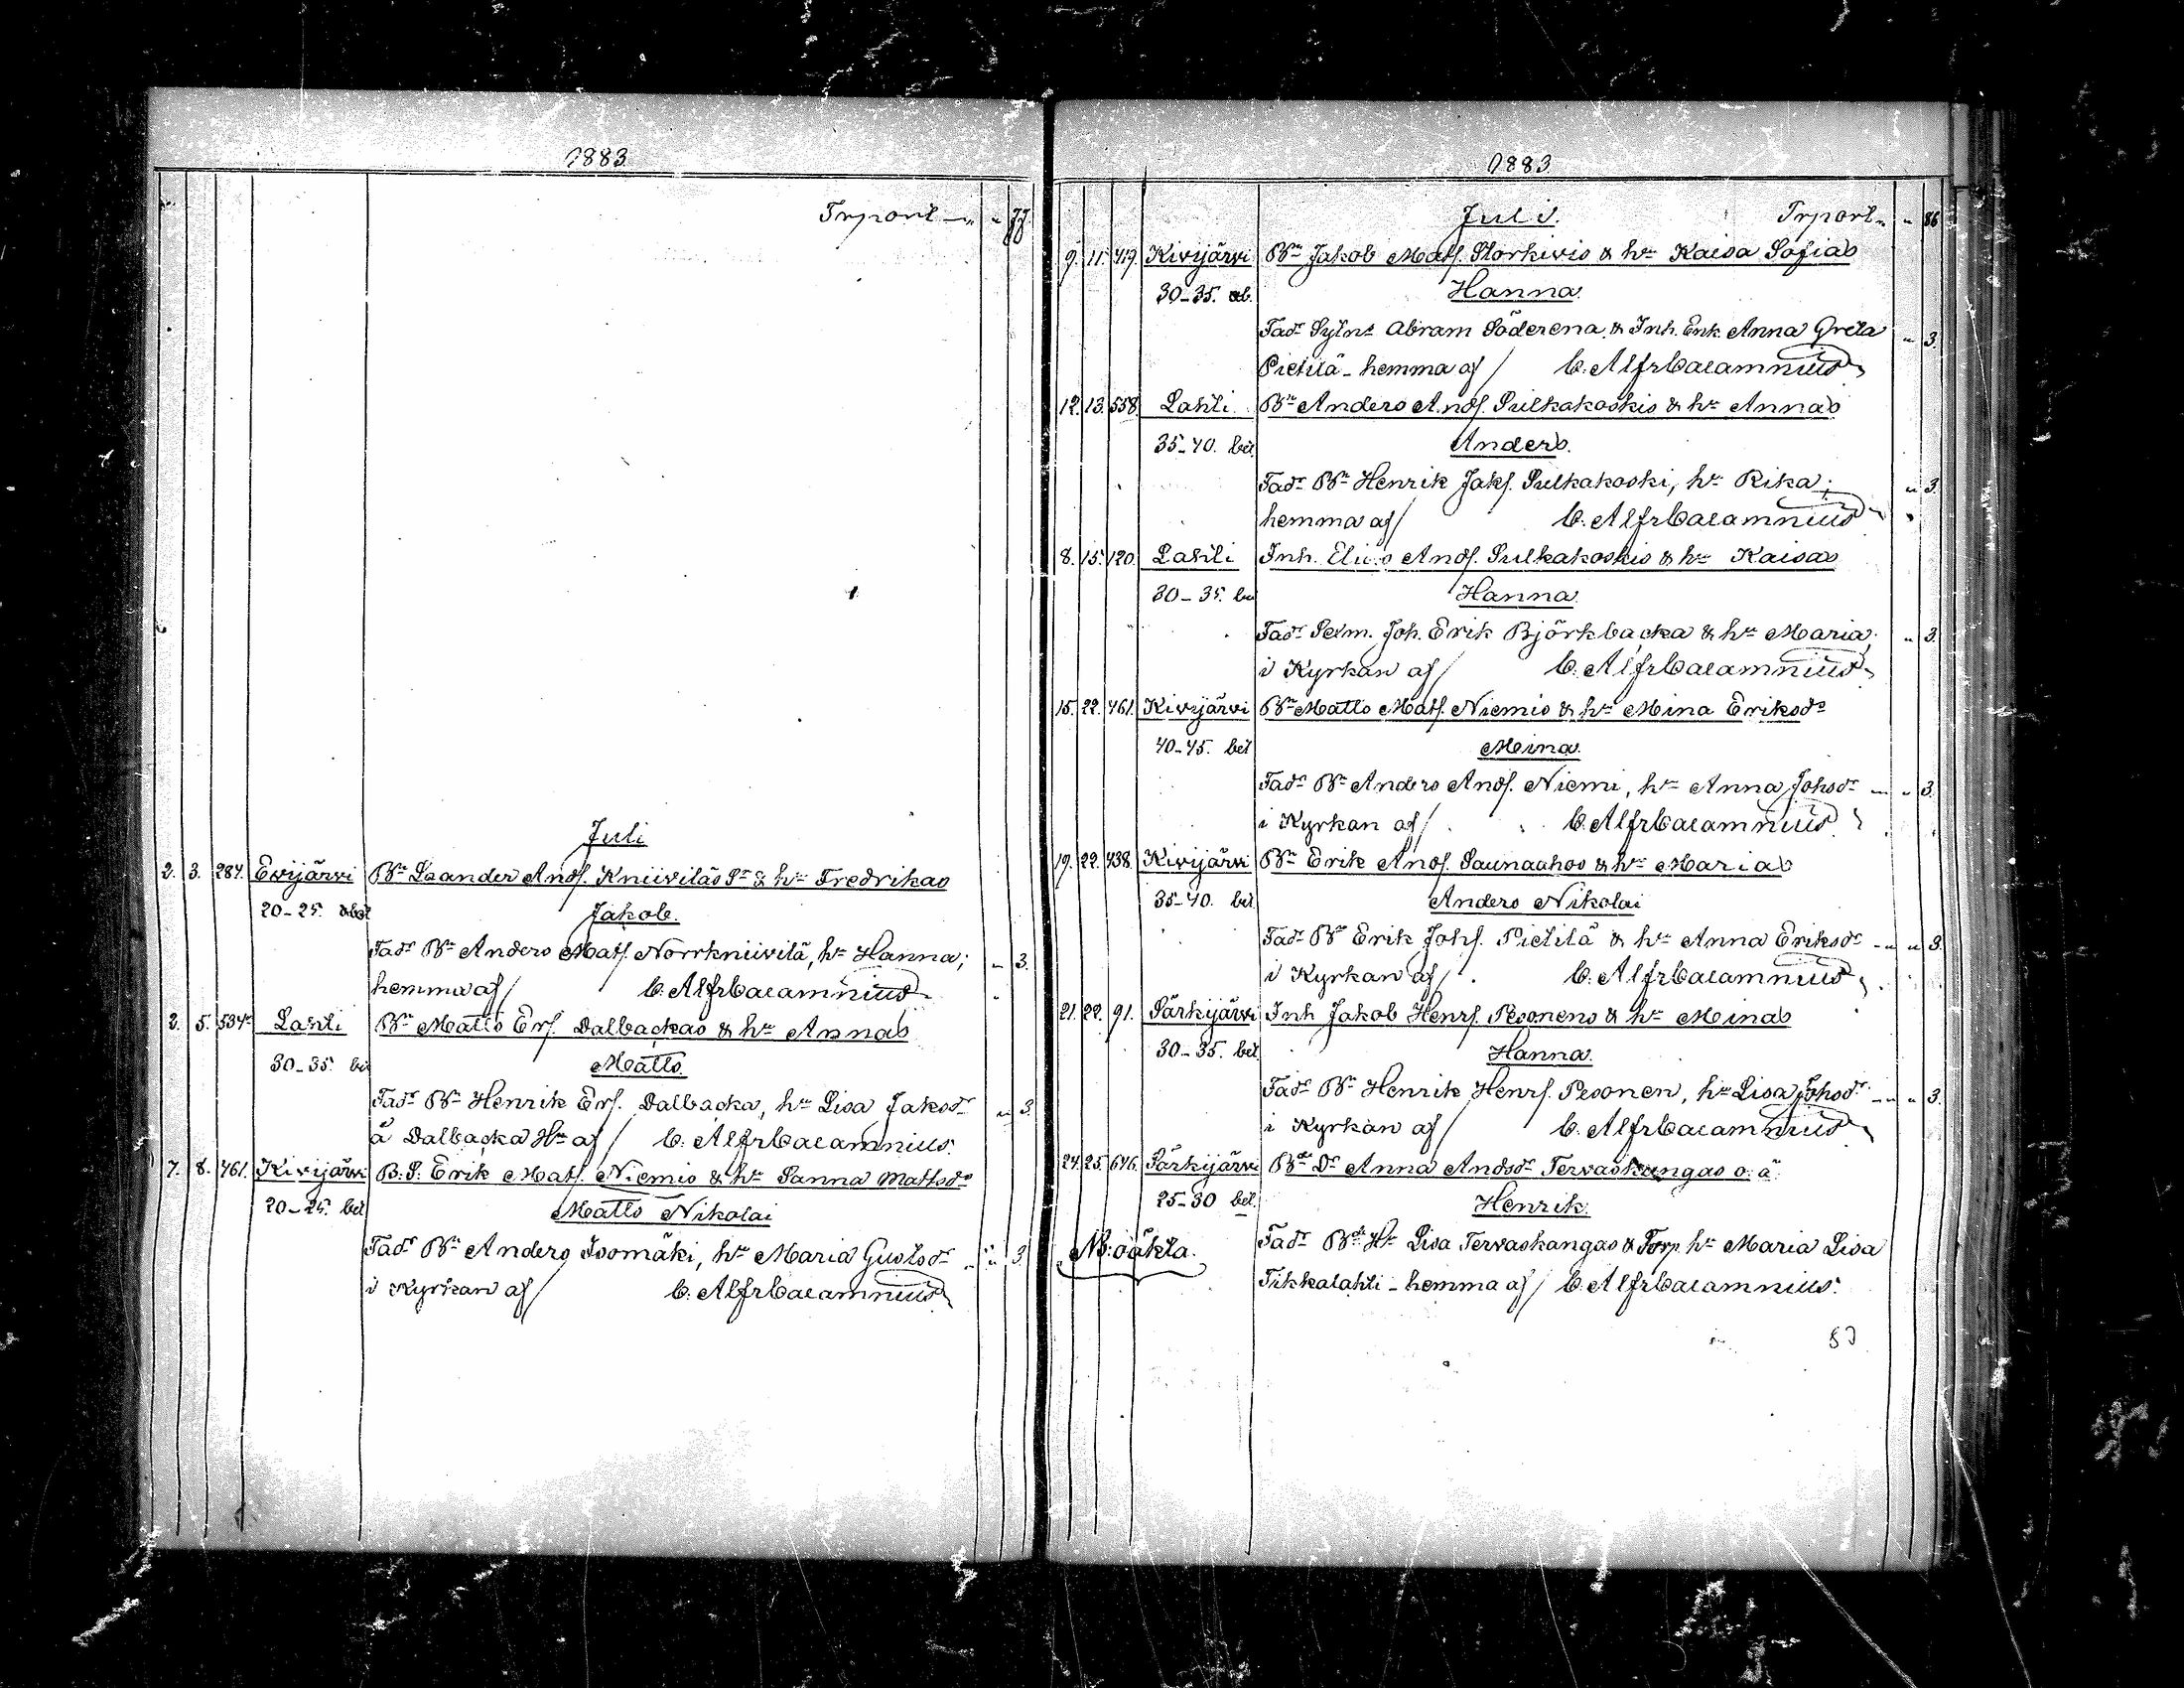 1883.
Trport — " " 77.
Juli
2. 3. 284. Evijärvi Bn Leander Ands. Kniiviläs Sn & hu Fredrikas
20-25. Jakob.
Fadr Bn Anders Mats. Norrkniivilä, hu Hanna; " 3.
hemma af / C. Alfr Calamnius
2. 5. 534. Lahti Bn Matts Ers. Dalbackas & hu Annas
30-35. bel Matts.
Fadr Bn Henrik Ers. Dalbacka, hu Lisa Jaksdr " 3.
å Dalbacka Hn af / C. Alfr Calamnius.
7. 8. 461. Kivijärvi B.S. Erik Mats. Niemis & hu Sanna Mattsds
20-25. bel Matts Nikolai
Fadr Bn Anders Isomäki, hu Maria Gustsdr " " 3.
i Kyrkan af / C. Alfr Calamnius
1883.
Juli. Trport " " 86
9. 11. 419. Kivijärvi Bn Jakob Mats. Storkivis & hu Kaisa Sofias
30-35. Hanna.
Fadr Abram Söderena, & Inh. Enk. Anna Greta " 3.
Pietilä - hemma af / C. Alfr Calamnius
12. 13. 558. Lahti Bn Anders Ands. Pulkakoskis & hu Annas
35-40. bel Anders.
Fadr Bn Henrik Jaks. Pulkakoski, hu Rika; " 3.
hemma af / C. Alfr Calamnius
8. 15. 120. Lahti Inh. Elias Ands. Pulkakoskis & hu Kaisas
30-35. bel Hanna.
Fadr Joh. Erik Björkbacka & hu Maria; " 3.
i Kyrkan af / C. Alfr Calamnius
15. 22. 461. Kivijärvi Bn Matts Mats. Niemis & hu Mina Eriksds
40-45. bel Mina.
Fadr Bn Anders Ands. Niemi, hu Anna Johsdr — " 3.
i Kyrkan af / C. Alfr Calamnius
19. 22. 438. Kivijärvi Bn Erik Ands. Saunaahos & hu Marias
35-40. bel. Anders Nikolai
Fadr Bn Erik Johs. Pietilä & hu Anna Eriksdr - " " 3.
i Kyrkan af / C. Alfr Calamnius
21. 22. 91. Särkijärvi Inh Jakob Henrs. Pesonens & hu Minas
30-35. bel. Hanna.
Fadr Bn Henrik Henrs. Pesonen, hu Lisa Johsdr - " " 3.
i Kyrkan af / C. Alfr Calamnius
24. 25. 646. Särkijärvi Bde Dr Anna Andsdr Tervaskangas o. ä.
25-30 bel. Henrik.
NB. oäkta. Fadr Bde Hr Lisa Tervaskangas & Torp. hu Maria Lisa
Tikkalahti - hemma af / C. Alfr Calamnius.